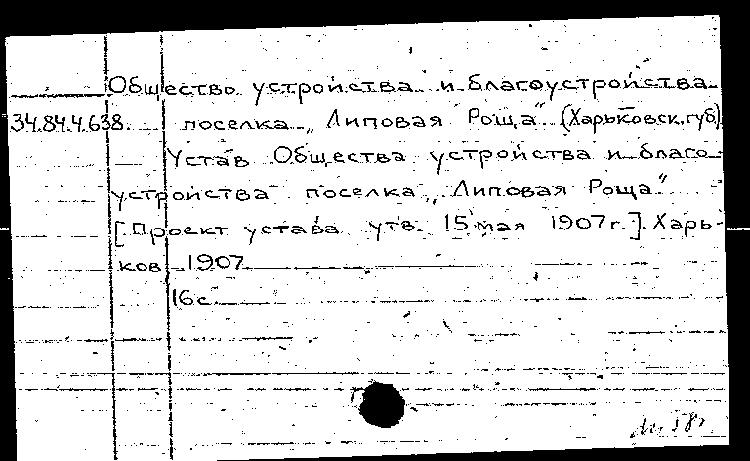 Общество устройства и благоустройства
34.84.4.638. поселка „Липовая Роща" (Харьковск. губ)
Устав Общества устройства и благо-
устройства поселка „Липовая Роща"
[Проект устава утв. 15 мая 1907 г.] Харь-
ков, 1907
16 с